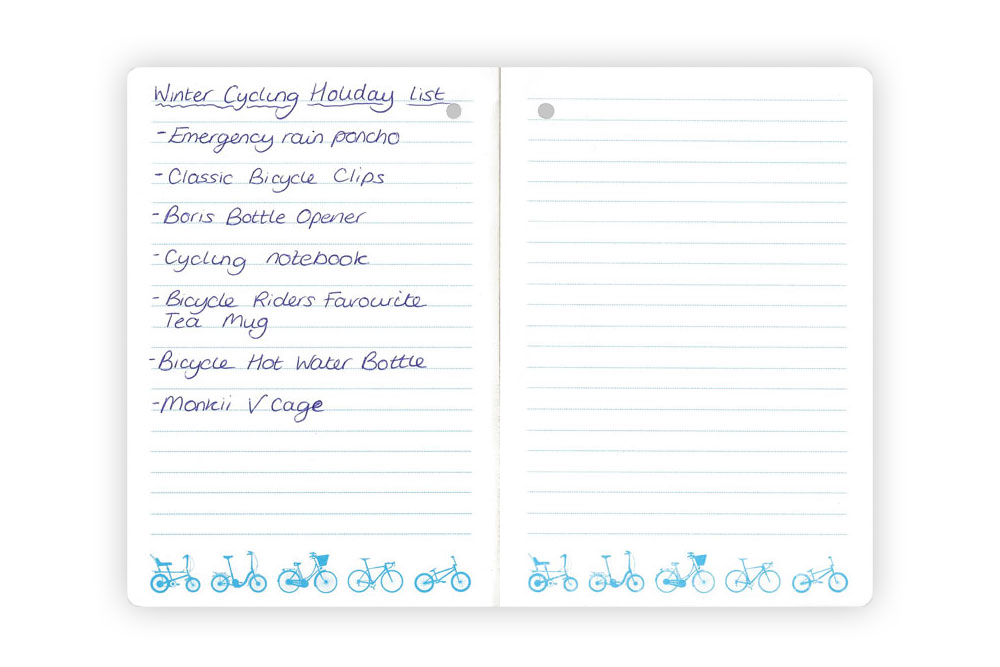 Winter Cycling Holiday list
- Emergency rain poncho
- Classic Bicycle Clips
- Boris Bottle Opener
- Cycling notebook
- Bicycle Riders Favourite
Tea Mug
- Bicycle Hot Water Bottle
- Monkii V Cage